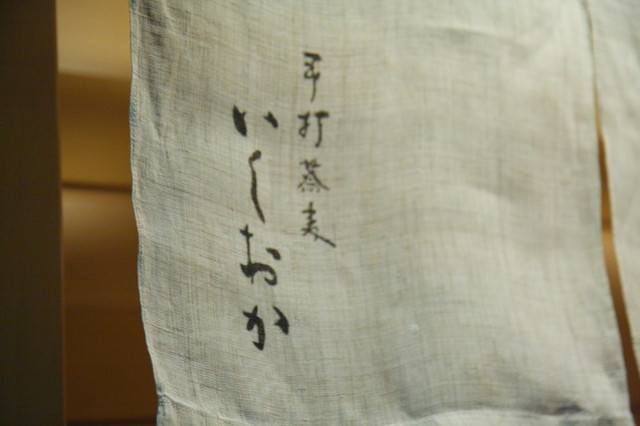 手打蕎麦
いしおか